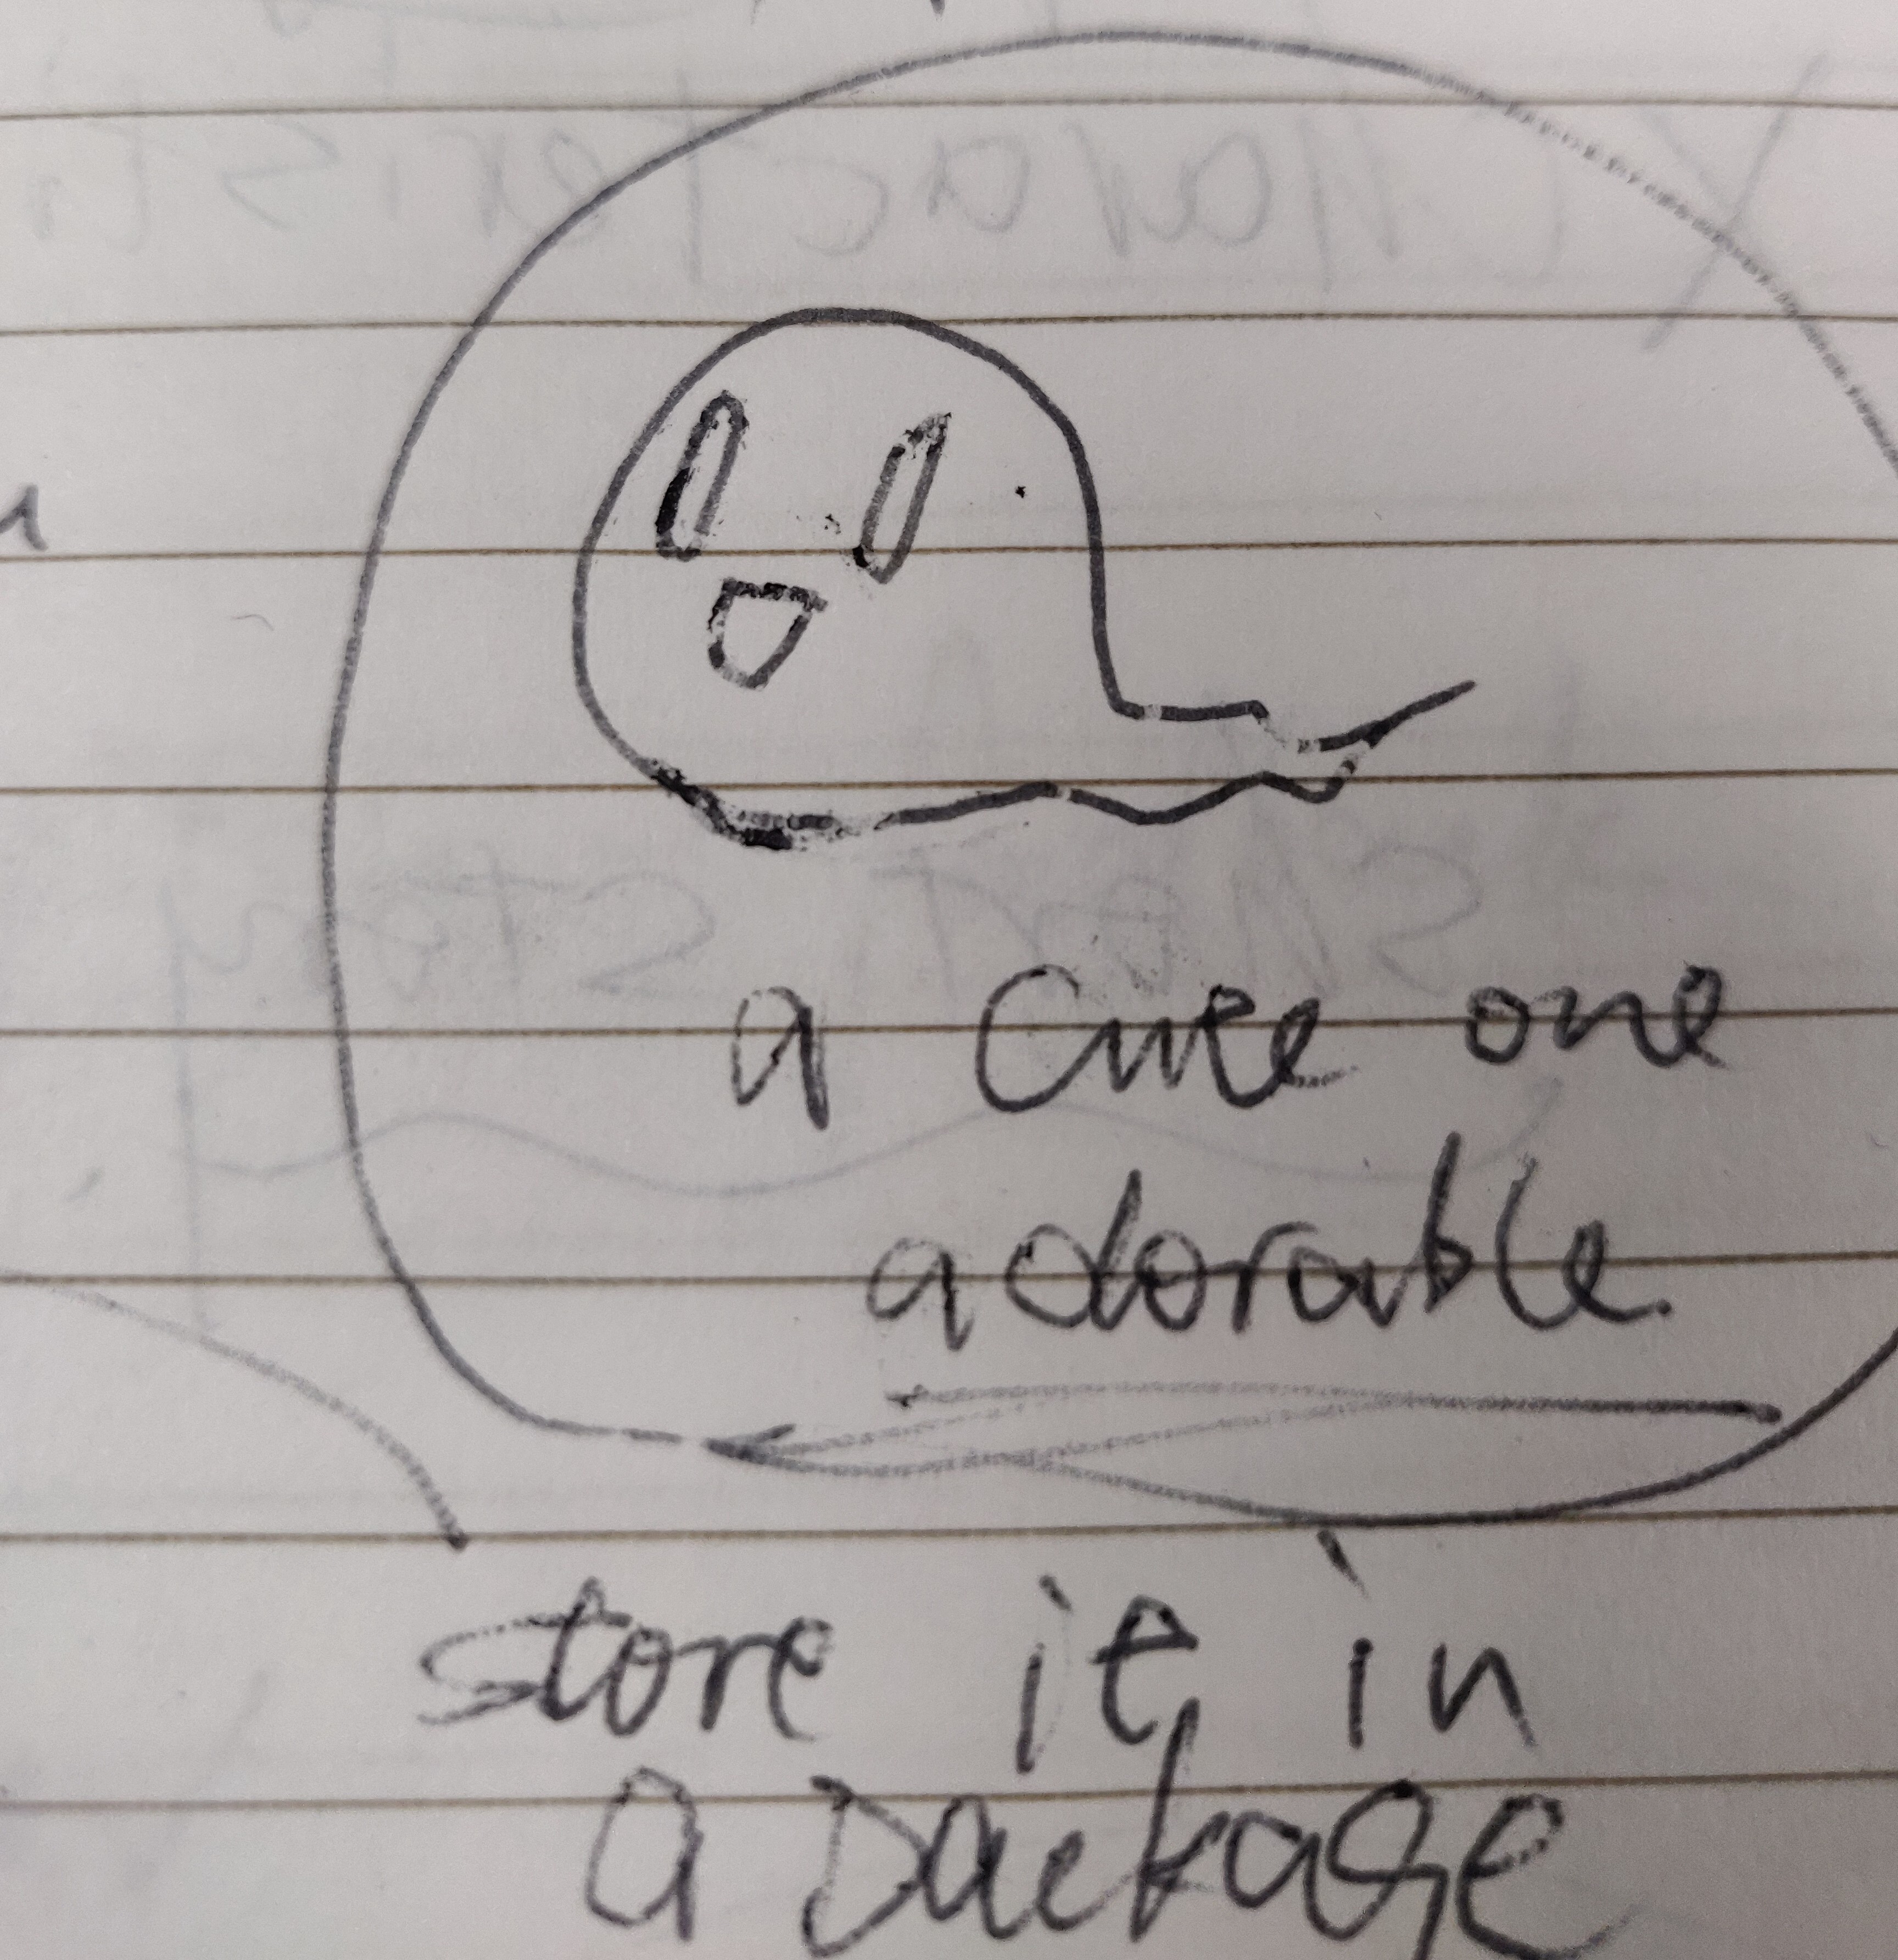 a cute one
adorable.
store it in
a package